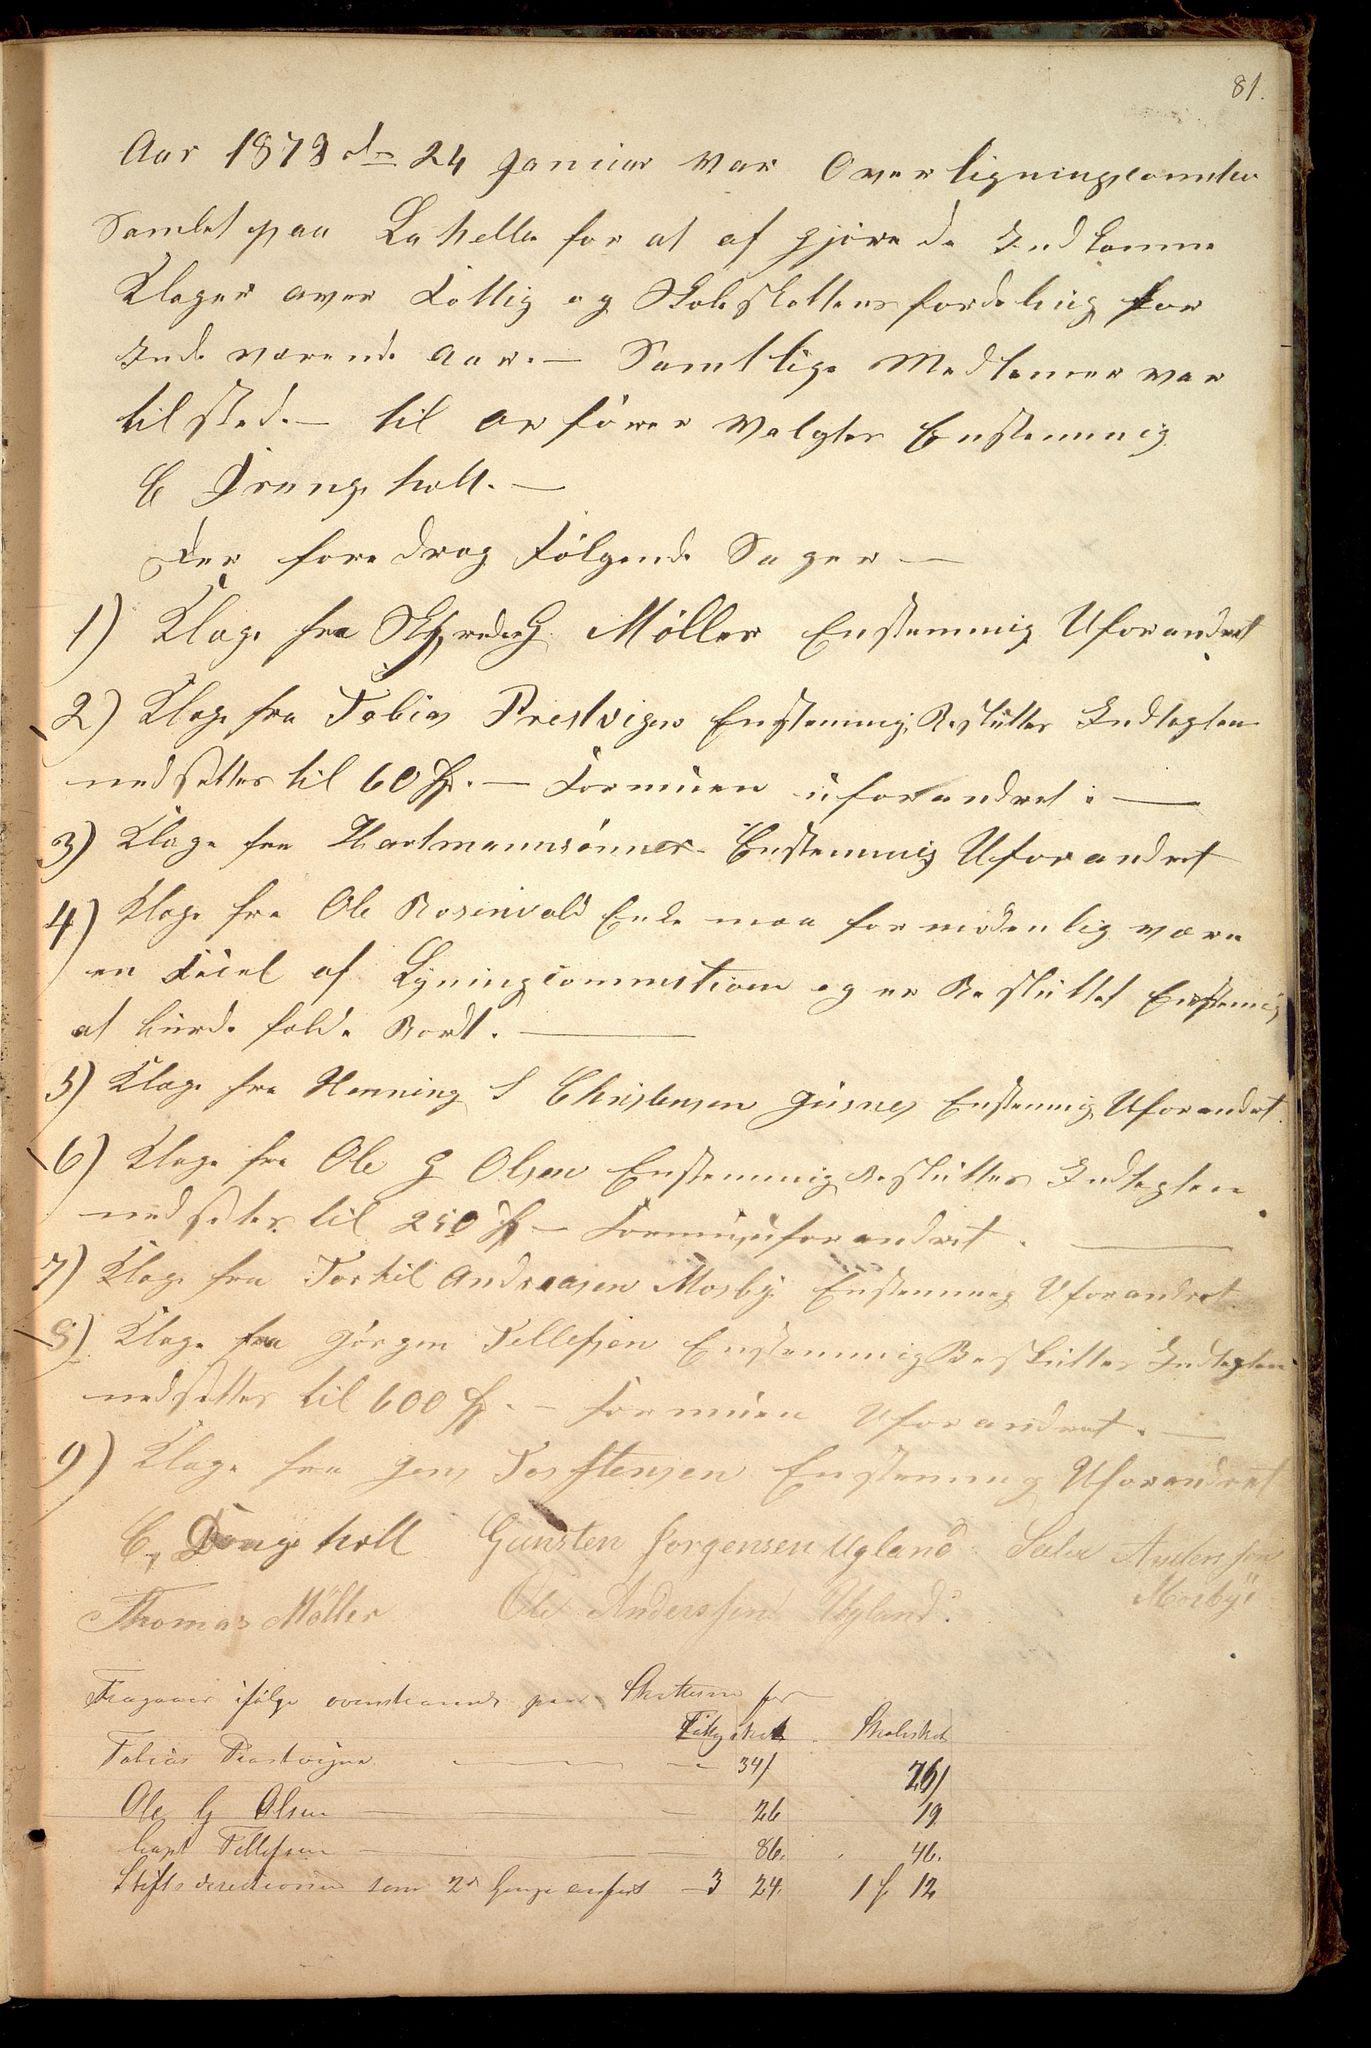 81.
Aar 1873 dn 24 Januar var Overligningscommten
Samlet paa Lahelle for at af gjøre de Indkomne
Klager over Fattig og Skoleskattens fordeling for
Inde værende Aar. — Samtlige Medlemer var
tilsted. — til ordfører valgtes Enstemmig
C Drangsholt. —
Der foredrog følgende Sager —
1) Klage fra G. Møller Enstemmig Uforandret
2) Klage fra Tobias Prestvigen Enstemmig Besluttes Indtegten
nedsettes til 60 — Formuen uforandret. —
3) Klage fra Hartmannsønner. Enstemmig Uforandret
4) Klage fra Ole Rosenvold Enke maa formodenlig være
en Feiel af Ligningcommitionen og er Besluttet Enstemig
at burde falde Bordt. —
5) Klage fra Henning S Christensen Justnes Enstemmig Uforandret.
6) Klage fra Ole G Olsen Enstemmig Besluttes Indtegten
nedsetes til 250 — Formuen uforandret. —
7) Klage fra Torkil Andreasen Mosby Enstemmig Uforandret.
8) Klage fra Jørgen Tellefsen Enstemmig Besluttes Indtegten
nedsettes til 600 — formuen Uforandret. —
9) Klage fra Jens Torstensen Enstemmig Uforandret
C, Drangsholt Gunsten Jorgensen Ugland Salve Anderssen
Mosby
Thomas Møller Ole Anderssen Ugland.
Fragaaer ifølge ovenstaaende paa Skatterne for
Fattigskat. Skoleskat
Tobias Prestvigen — 34/ 26/
Ole G Olsen — 26 19
Capt Tellefsen — 86. 46.
Stiftsdirectionen som 2de Gange anført — 3 24. 1 12